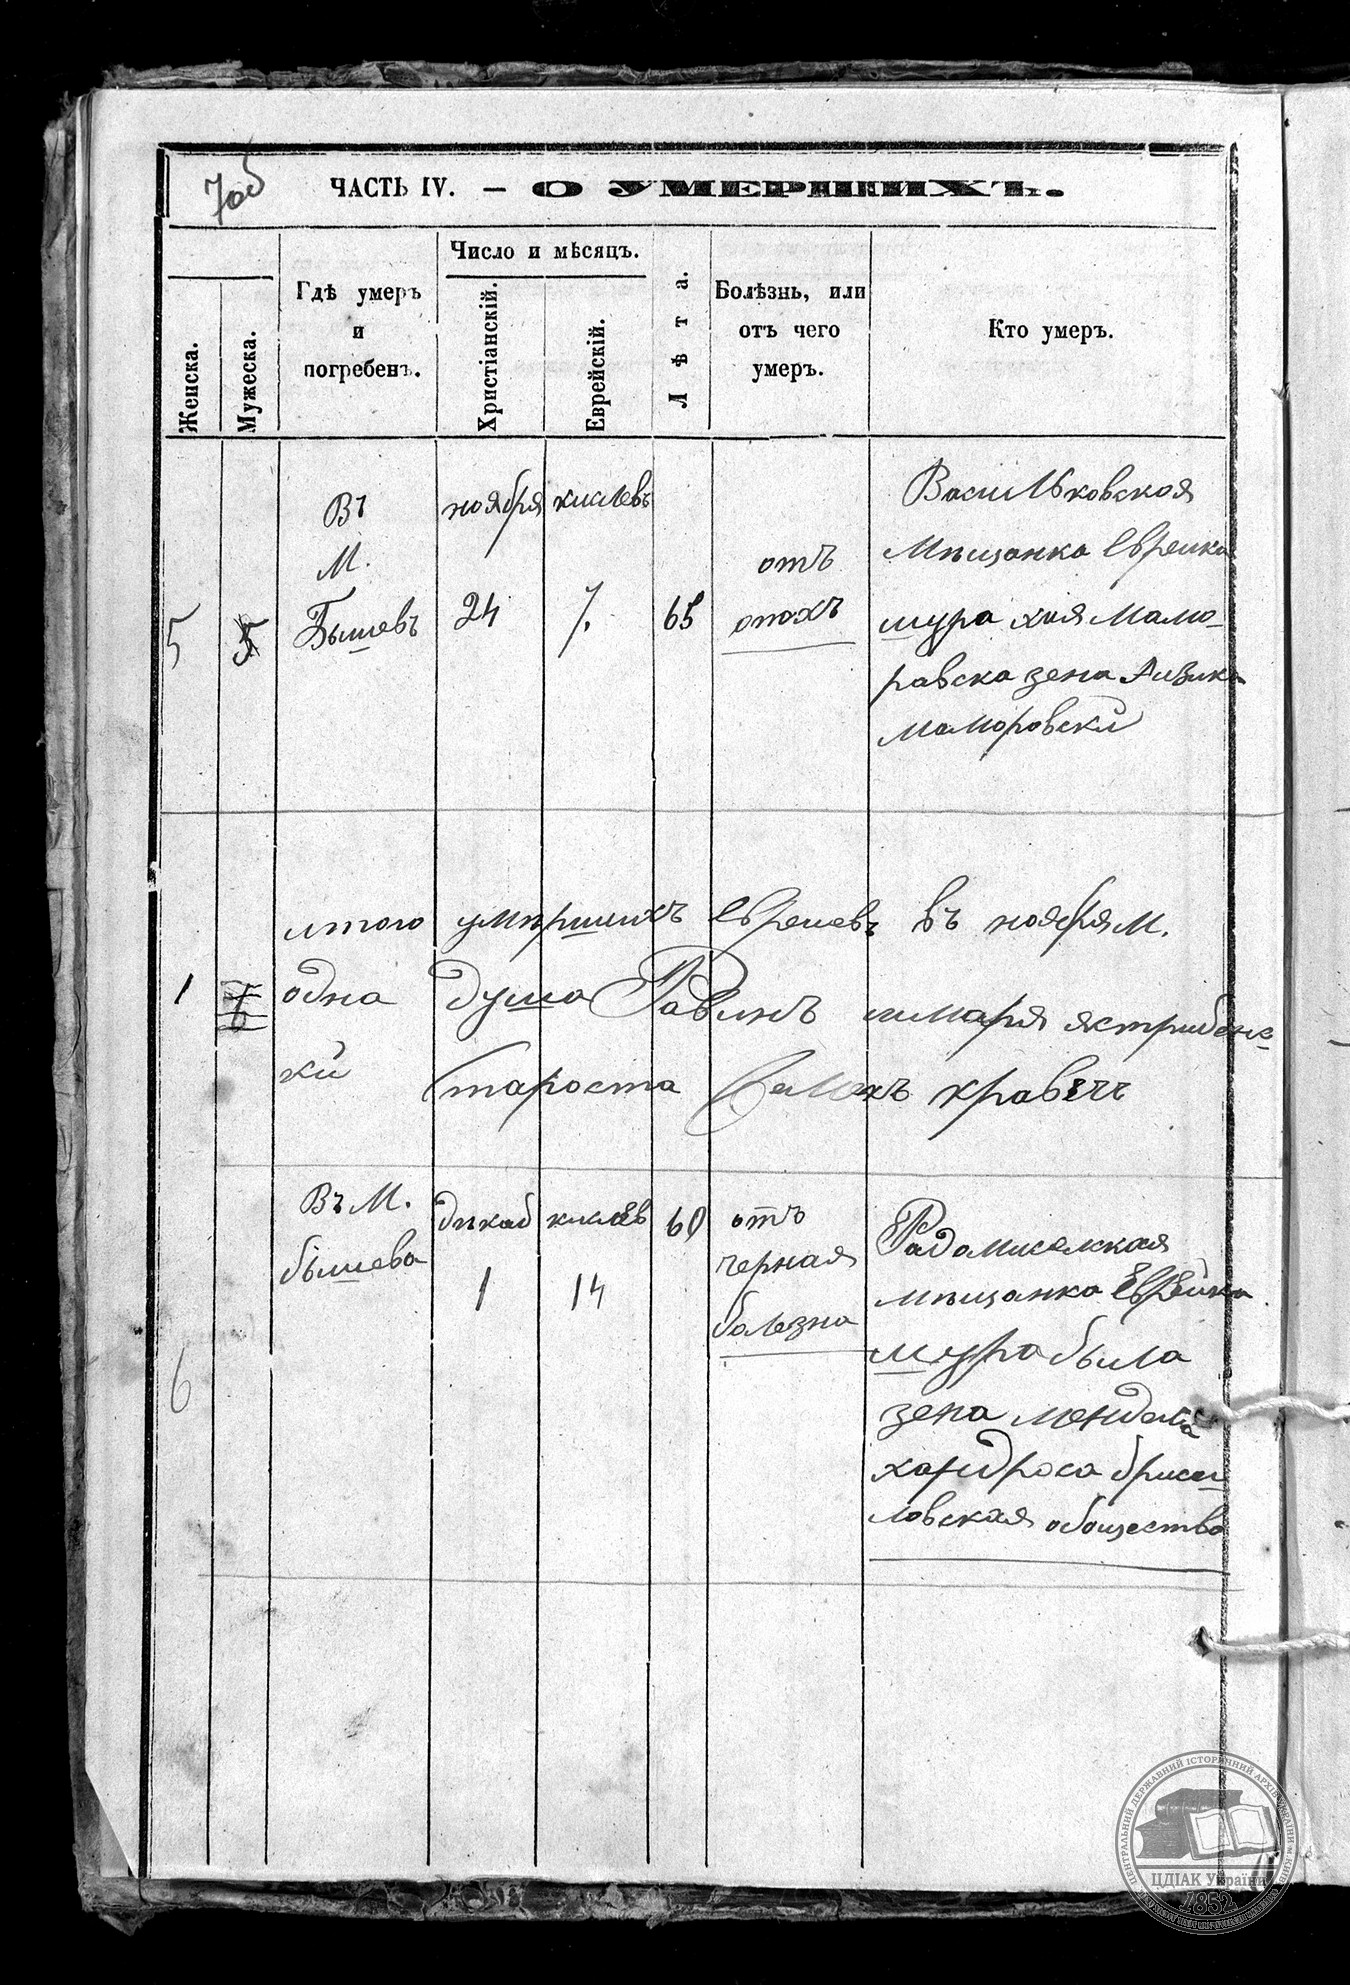 70б
ЧАСТЬ IV. — О УМЕРШИХЪ.
Женска.
Мужеска.
Гдѣ умеръ
и
погребенъ.
Число и мѣсяцъ.
Христіанскій.
Еврейскій.
Лѣта.
Болѣзнь, или
отъ чего
умеръ.
Кто умеръ.
5
5
Въ
М.
Бышевъ
ноября
24
кислевъ
7.
65
отъ
опохъ
Васильковская
мѣщанка Евреика
шура хая Мамо-
равска зена Аизика
маморовскй
1
итого умѣршихъ Евреиевъ въ ноября М.
одна душа Равинъ шмаря ястрибенс-
кй Староста кравецъ
6
Въ М.
бышева
дѣкаб
1
кислев
14
60
отъ
черная
болезна
Радомиселская
мѣщанка Еврейка
шура была
зена мендела
хандроса бруси-
ловская общество
ЦЕНТРАЛЬНИЙ ДЕРЖАВНИЙ ІСТОРИЧНИЙ АРХІВ УКРАЇНИ
ЦДІАК України
1852